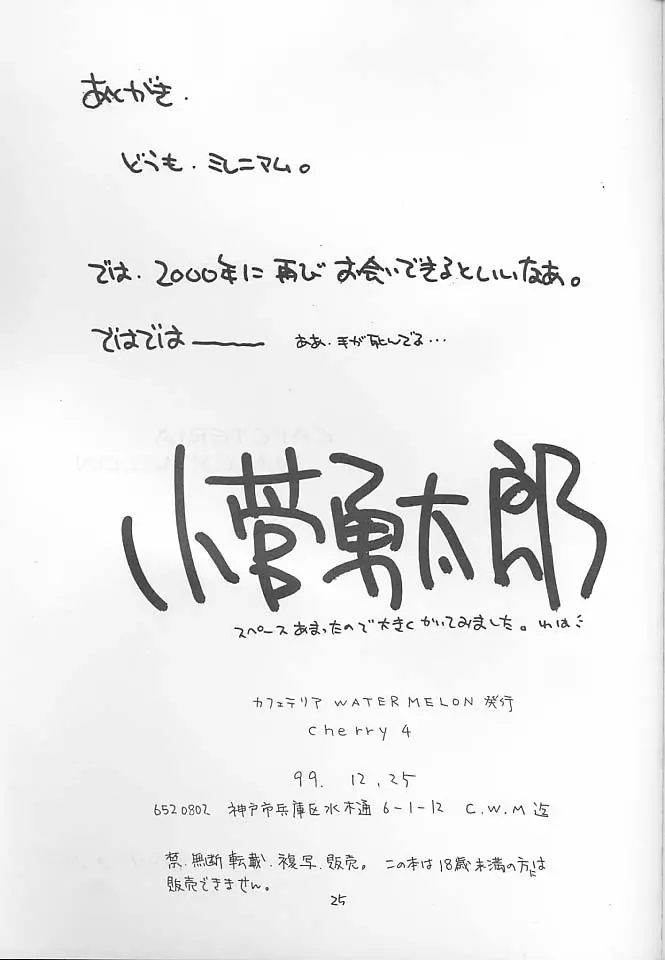 あとがき.
どうも.ミレニアム。
では.2000年に再びお会いできるといいなあ。
ではでは―― ああ.手が死んでる…
小菅勇太郎
スペースあまったので大きくかいてみました。わは
カフェテリア WATER MELON 発行
cherry 4
99. 12. 25
6520802 神戸市兵庫区水木通 6-1-12 C.W.M 迄
禁.無断転載.複写.販売。 この本は18歳未満の方には
販売できません。
25